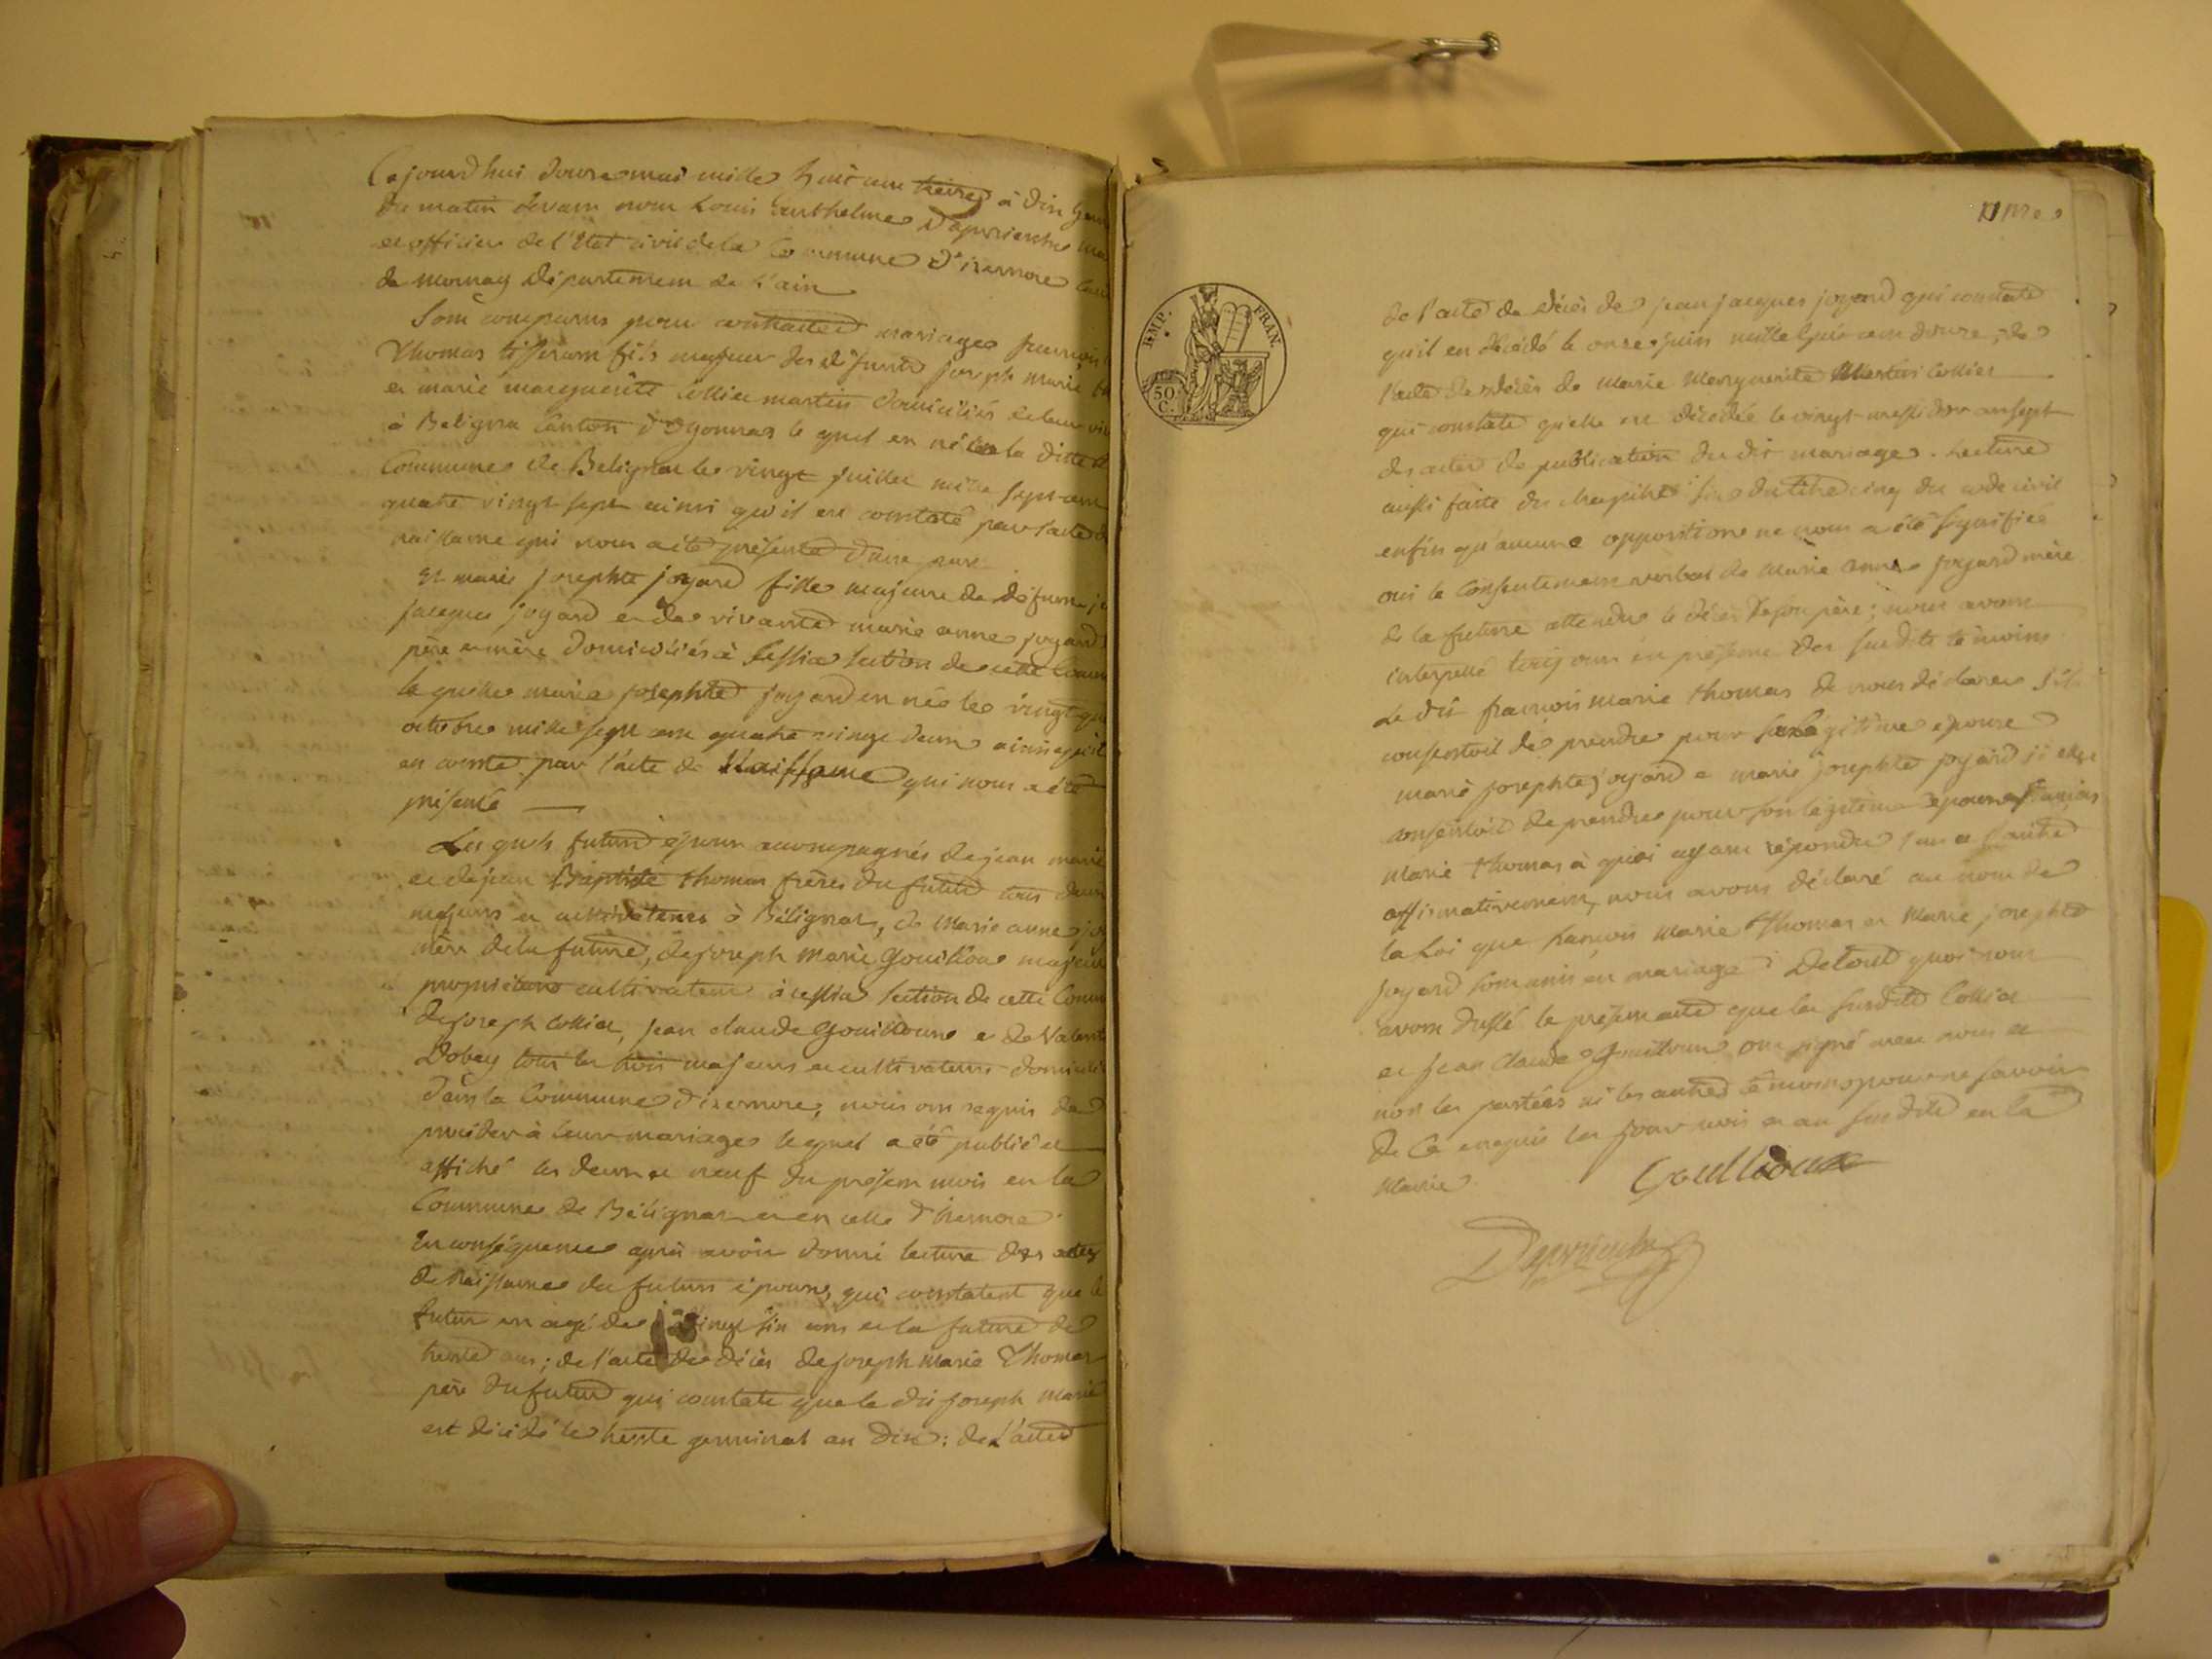 Cejourd'hui douze mai mille huit cent treize à dix heu
du matin devant nous Louis anthelme Dapvrieulx mai
et officier de l'Etat civil de la Commune d'isernore cant
de mornay département de l'ain
Sont comparus pour contracter mariage francois
Thomas tisseram fils majeur des défunts joseph marie th
et marie marguerite collier martin domiciliés de leur viv
à Belignia Canton d'oyonnaz le quel en né en la ditte
Commune de Belignia le vingt juillet mille sept cent
quatre vingt sept ainsi qu'il est constaté par l'acte d
naissance qui nous a été présenté d'une part
Et marie josephte joyard fille majeure de défunt je
jacques joyard et de vivante marie anne joyard
père et mère domiciliés à cessia section de cette Comm
la quelle marie josephte joyard en née le vingt qu
octobre mille sept cent quatre vingt deux ainsi qu'il
en constté par l'acte de Naissance qui nous a été
présenté
Les quels futurs époux accompagnés de jean marie
et de jean Baptiste thomas frères du futur tous deux
majeurs et cultivateurs à Bélignat, de Marie anne jo
mère de la future, de joseph marie Gouilloux majeur
propriétaire cultivateur à cessia section de cette Comm
de joseph collier, jean claude Gouilloune et de Valent
Dobey tous les trois majeurs et cultivateurs domicilié
dans la Commune d'isernore, nous ont requis de
procéder à leur mariage lequel a été publié et
affiché les deux et neuf du présent mois en la
Commune de Bélignat et en celle d'isernore
En conséquence après avoir donné lecture des actes
de Naissance des futurs époux, qui constatent que le
futur en agé de vingt six ans et la future de
trente ans ; de l'acte de décès de joseph marie Thomas
père du futur qui constate que le dit joseph marie
est décédé le trente germinal an dix ; de l'acte
de l'acte de décès de jean jacques joyard qui constate
qu'il en décédé le onze juin mille huit cent douze, de
l'acte de décès de Marie Marguerite Martin Collier
qui constate qu'elle est décédée le vingt messidor an sept
des actes de publication du dit mariage. Lecture
aussi faite du chapitre six du titre cinq du code civil
enfin qu'aucune opposition ne nous a été signifiée
oui le Consentement verbal de Marie anne joyard mère
de la future attendu le décès de son père ; nous avons
interpellé toujours en présence des susdits témoins
Le dit francois marie thomas de nous déclarer s'il
consentoit de prendre pour sa légitime épouse
marie josephte joyard et marie josephte joyard si elle
consentoit de prendre pour son légitime époux francois
Marie Thomas à quoi ayant répondu l'un et l'autre
affirmativement, nous avons déclaré au nom de
la Loi que francois Marie Thomas et Marie josephte
joyard sont unis en mariage ; De tout quoi nous
avons dressé le présent acte que les susdits Collier
et jean claude Gouilloux ont signé avec nous et
non les parties ni les autres témoins pour ne savoir
de ce enquis les jour mois et an susdits en la
Mairie.
Gouilloux
Dapvrieulx
EMP. FRAN.
50 C.